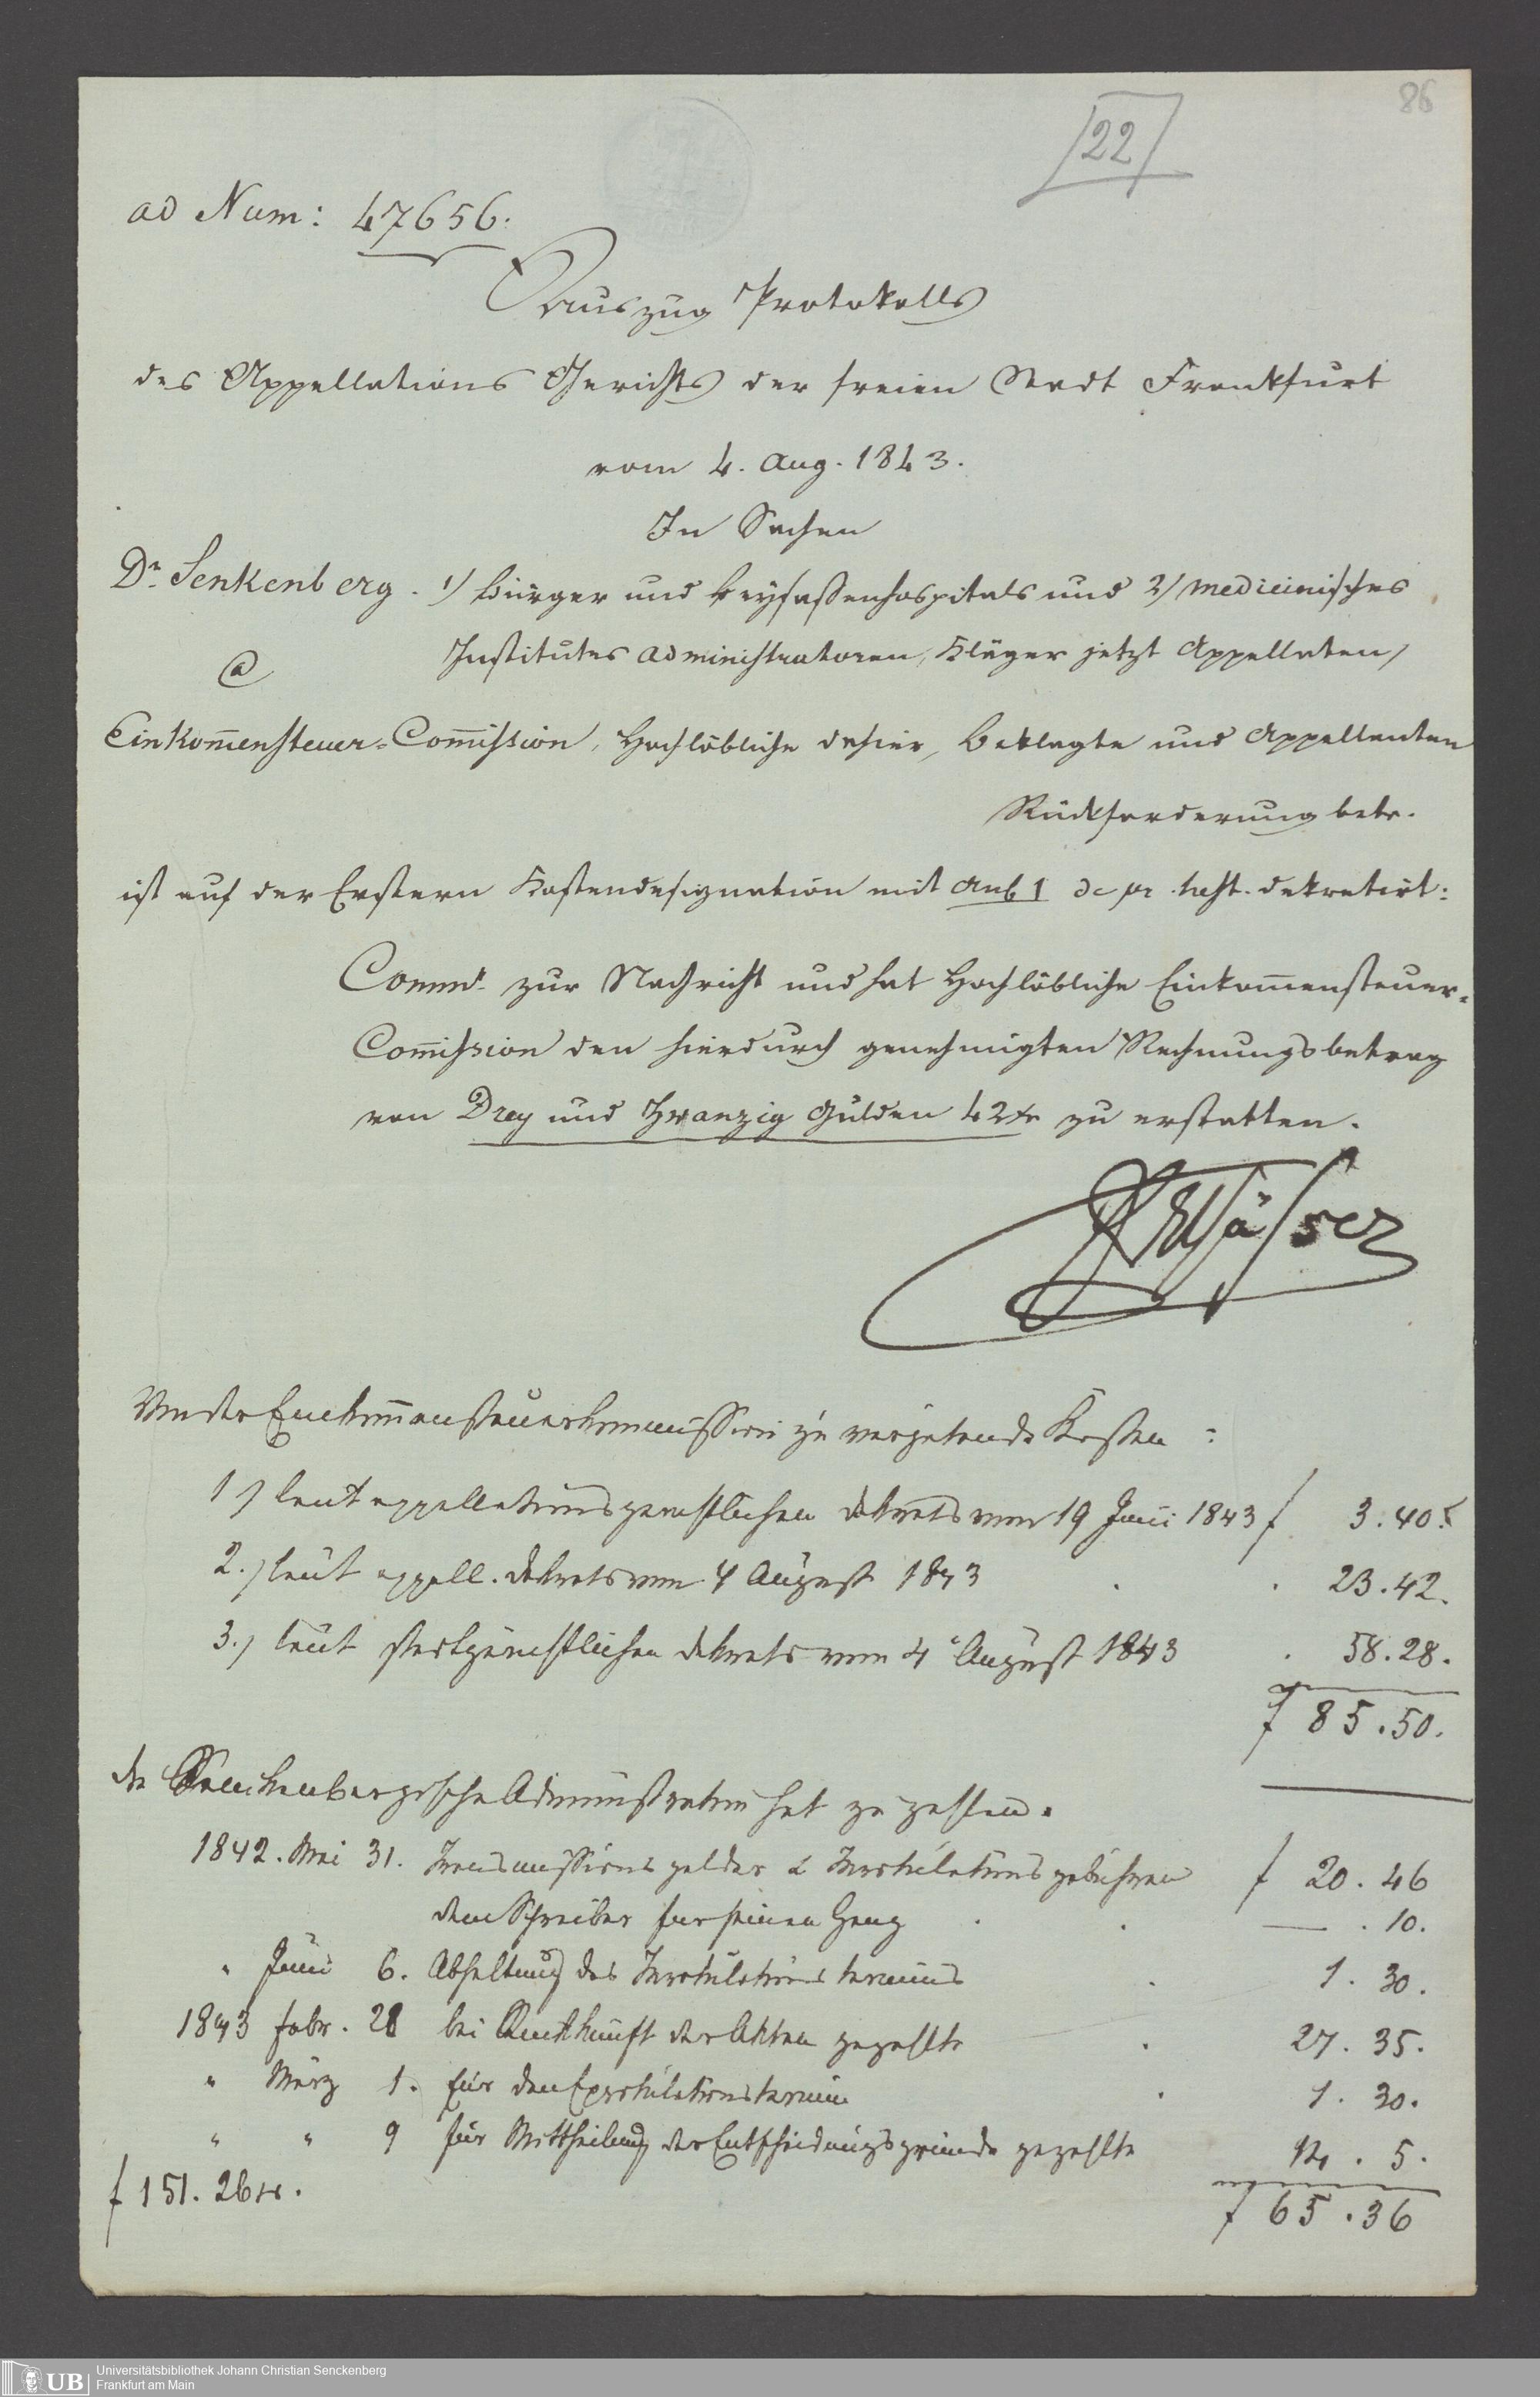 86
22
ad Num: 47656.
Auszug Protokolls
des Appellations Gerichts der freien Stadt Frankfurt
vom 4. Aug. 1843.
In Sachen
Dr. Senkenberg. 1/ Bürger und Beysaßenhospitals und 2/ medicinisches
Institutes Administratoren, Kläger jetzt Appellaten,
@
Einkom̅ensteuer-Com̅ission, Hochlöbliche dahier, Beklagte und Appellanten
Rückforderung betr.
ist auf der Erstern Kostendesignation mit Anl 1 de pr. dekretirt:
zur Nachricht und hat Hochlöbliche Einkom̅ensteuer-
Com̅ission den hierdurch genehmigten Rechnungsbetrag
von Drey und Zwanzig Gulden 42 xr zu erstatten.
Von der Einkom̅ensteuerkommission zu vergütende Kosten:
1.) laut appellationsgerichtlichen Dekrets vom 19 Juni 1843 f 3.40.
2.) laut appell. Dekrets vom 4 August 1843 . . 23.42.
3.) laut stadtgerichtlichen Dekrets vom 4 August 1843 . 58.28.
f 85.50.
die Senckenbergische Administration hat zu zahlen.
1842. Mai 31. Transmissionsgelder & Inrotulationsgebühren f 20.46
dem Schreiber für seinen Gang . . — .10.
" Juni 6. Abhaltung des Inrotulationstermins . 1.30.
1843 Febr. 28 bei Rückkunft der Akten gezahlt . 27.35.
" März 1. für den Exrotulationstermin . 1.30.
" " 9 für Mittheilung der Entscheidungsgründe gezahlt 14.5.
f 151.26 xr. f 65.36
UB Universitätsbibliothek Johann Christian Senckenberg
Frankfurt am Main